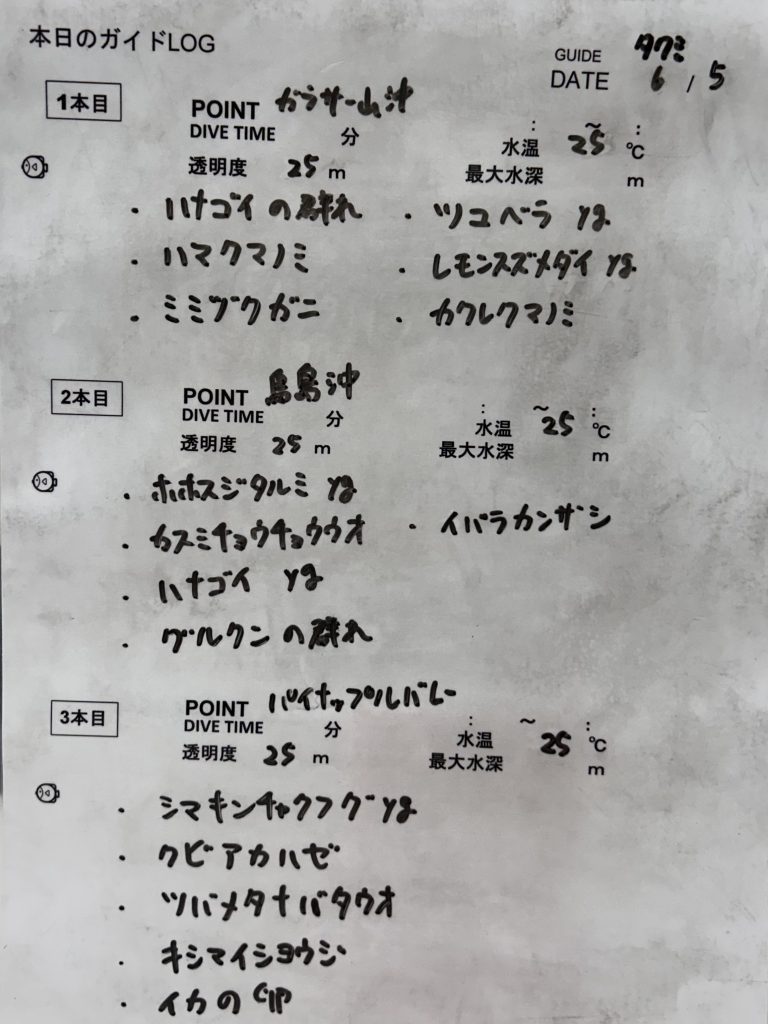 本日のガイドLOG
GUIDE タクミ
DATE 6 / 5
1本目
POINT ガラサー山沖
DIVE TIME 分 : ~ :
透明度 25 m 水温 25 ℃
最大水深 m
・ハナゴイの群れ ・ツユベラ yg
・ハマクマノミ ・レモンスズメダイ yg
・ミミヅクガニ ・カクレクマノミ
2本目
POINT 烏島沖
DIVE TIME 分 : ~ :
透明度 25 m 水温 25 ℃
最大水深 m
・ホホスジタルミ yg
・カスミチョウチョウウオ ・イバラカンザシ
・ハナゴイ yg
・グルクンの群れ
3本目
POINT パイナップルバレー
DIVE TIME 分 : ~ :
透明度 25 m 水温 25 ℃
最大水深 m
・シマキンチャクフグ yg
・クビアカハゼ
・ツバメタナバタウオ
・キシマイショウジ
・イカの卵